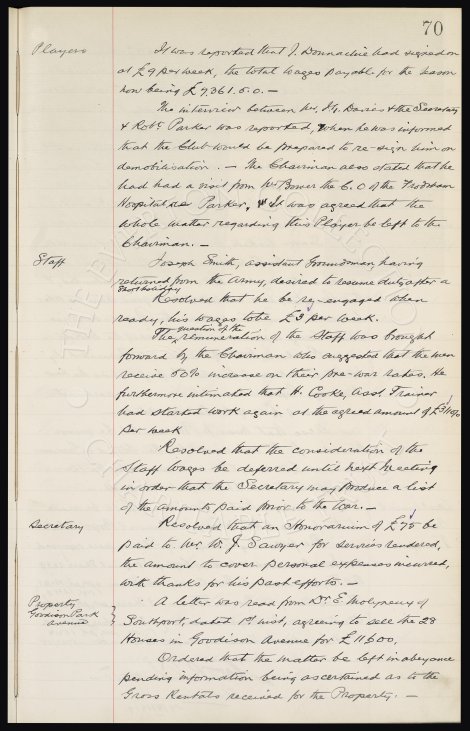 70
Players It was reported that J. Donnachie had signed on
at £9 per week, the total wages payable for the season
now being £7,361. 0. 0. —
The interview between Mr. Davies & the Secretary
& Robt. Parker was reported, when he was informed
that the Club would be prepared to re-sign him on
demobilisation. — The Chairman also stated that he
had had a visit from Mr Bower the C.O of the Frodsham
Hospital re Parker, It was agreed that the
whole matter regarding this Player be left to the
Chairman. —
Staff Joseph Smith, assistant Groundsman, having
returned from the Army, desired to resume duty after a
short holiday
Resolved that he be re-engaged when
ready, his wages to be £3 per week.
The question of the remuneration of the Staff was brought
forward by the Chairman who suggested that the men
receive 50% increase on their pre-war rates. He
furthermore intimated that H. Cooke, Asst. Trainer
had started work again at the agreed amount of £3/10/0
per week
Resolved that the consideration of the
Staff Wages be deferred until next Meeting
in order that the Secretary may produce a list
of the amounts paid prior to the War. —
Secretary Resolved that an Honorarium of £75 be
paid to Mr. W. J. Sawyer for services rendered,
the amount to cover personal expenses incurred,
with thanks for his past efforts. —
Property Goodison Park avenue } A letter was read from Dr E. Molyneux of
Southport, dated 1st inst, agreeing to sell the 28
Houses in Goodison Avenue for £11,500,
Ordered that the matter be left in abeyance
pending information being ascertained as to the
Gross Rentals received for the Property. —